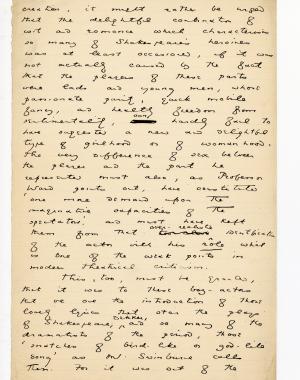 creation, it might rather be urged
that the delightful combination of
wit and romance which characterises
so many of Shakespeare's heroines
was at least occasioned, if it was
not actually caused by the fact
that the players of these parts
were lads and young men, whose
passionate purity, quick mobile
fancy, and healthy freedom from
sentimentality could hardly fail to
have suggested a new and delightful
type of girlhood or of womanhood.
The very difference of sex between
the player and the part he
represents must also, as Professor
Ward points out, have constituted
'one more demand upon the
imaginative capacities of the
spectators' and must have kept
them from that over-realistic identification
of the actor with his rôle which
is one of the weak points in
modern theatrical criticism.
This, too, must be granted,
that it was to these boy-actors
that we owe the introduction of those
lovely lyrics that star the plays
of Shakespeare, Dekker, and so many of the
dramatists of the period, those
'snatches of bird-like or god-like
song' as Mr. Swinburne calls
them. For it was out of the